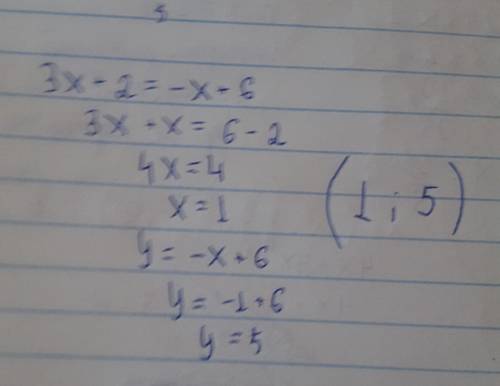 5
3x - 2 = -x + 6
3x + x = 6 - 2
4x = 4
x = 1
(1 ; 5)
y = -x + 6
y = -1 + 6
y = 5